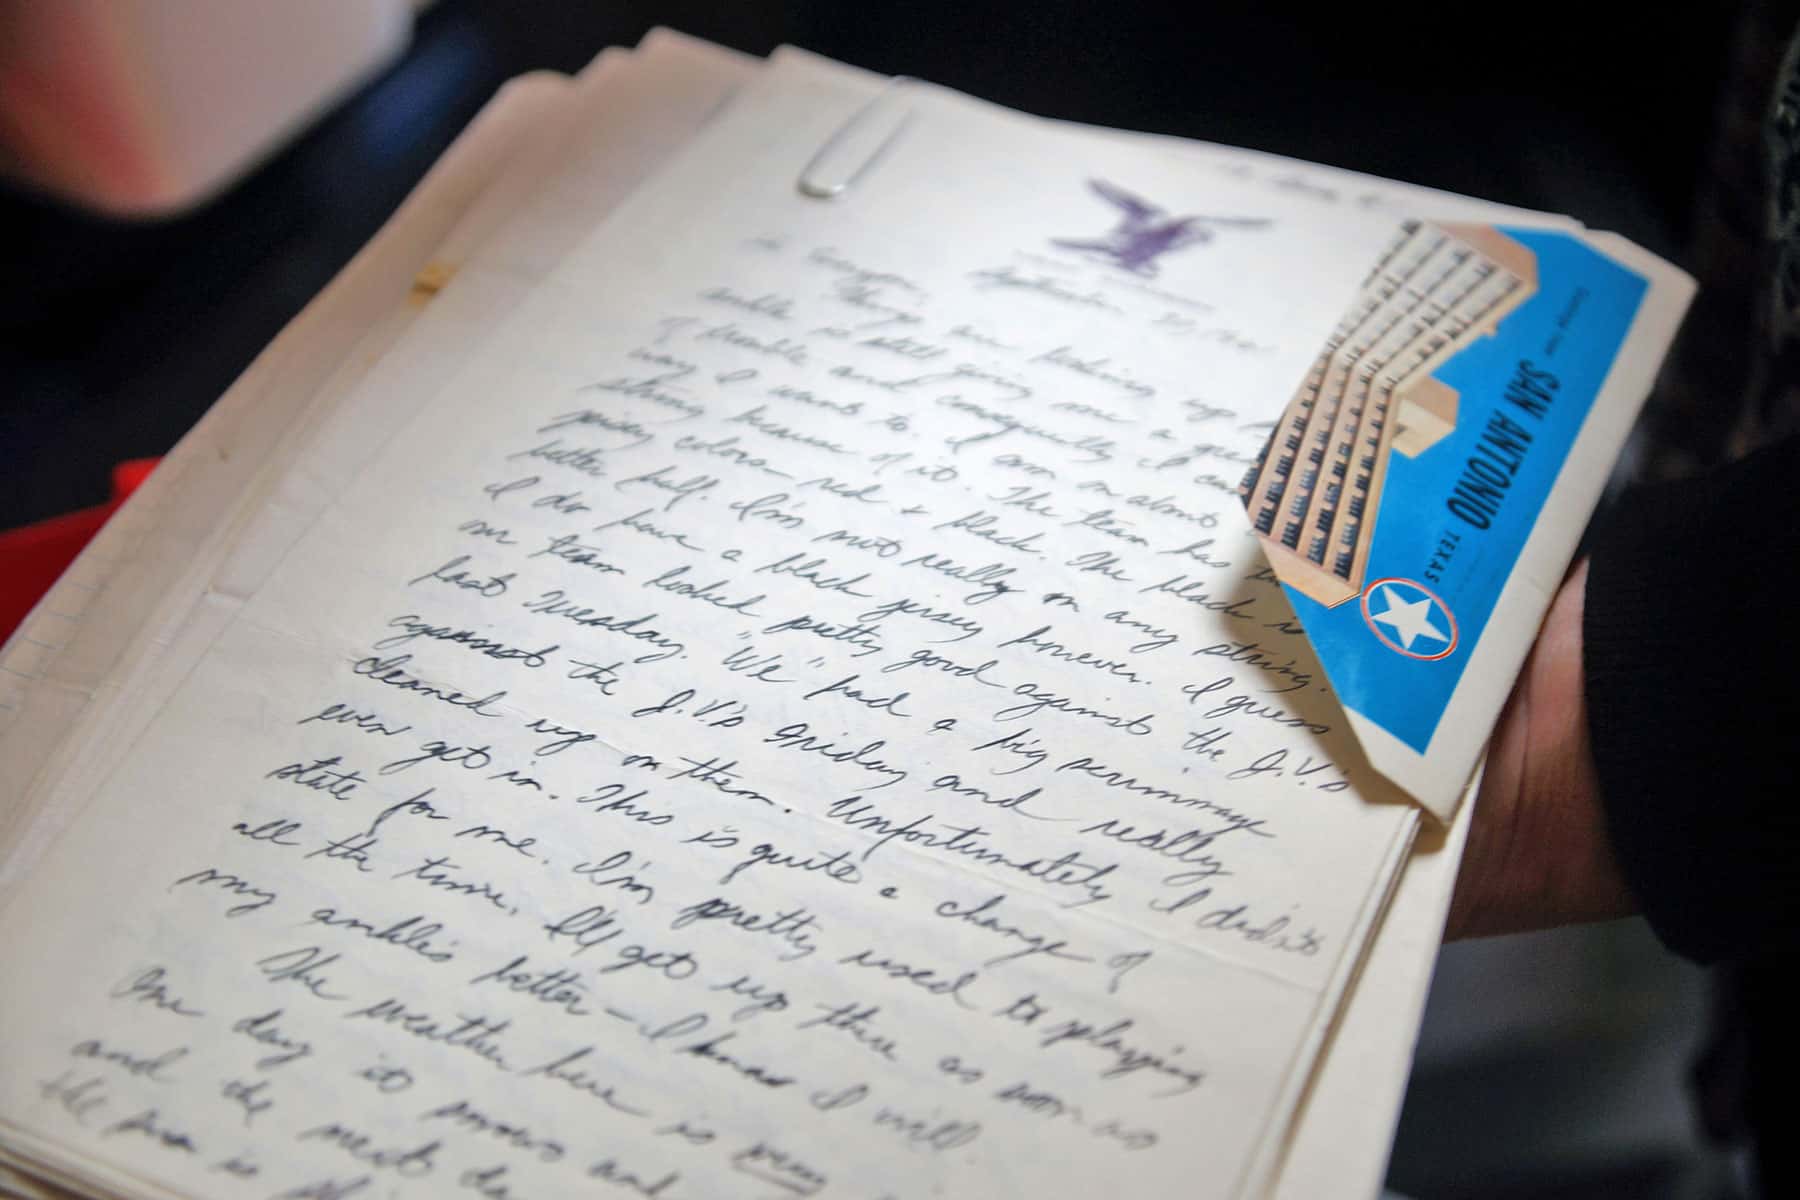 Things are looking up
ankle is still giving me a
of trouble and consequently I
way I want to. I am on about
string because of it. The team has
jersey colors red & black. The black is
better half. I'm not really on any string.
I do have a black jersey however. I guess
our team looked pretty good against the J.V.'s
last Tuesday. "We" had a big scrimmage
against the J.V.'s Friday and really
cleaned up on them. Unfortunately I didn't
even get in. This is quite a change of
state for me. I'm pretty used to playing
all the time. I'll get up there as soon as
my ankle's better — I know I will.
The weather here is very
One day it snows and
and the next da
the sun is
SAN ANTONIO
TEXAS